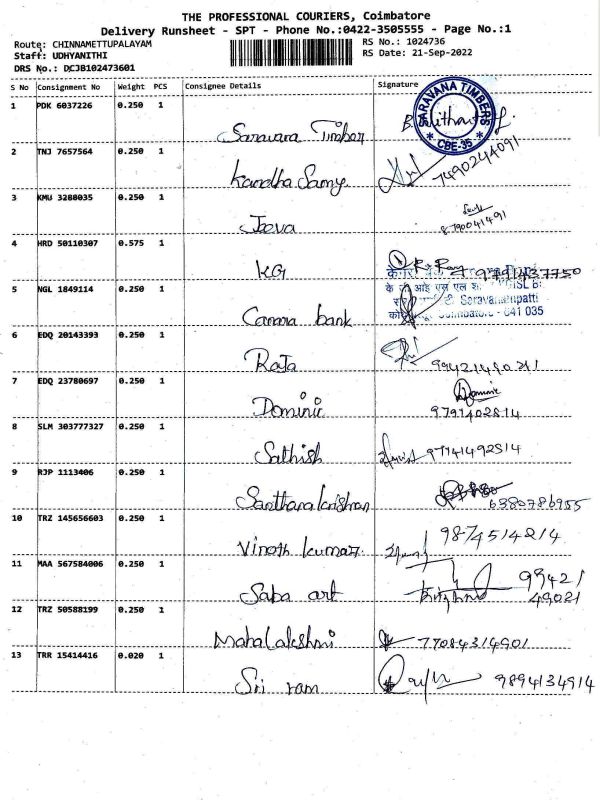 THE PROFESSIONAL COURIERS, Coimbatore
Delivery Runsheet - SPT - Phone No.:0422-3505555 - Page No.:1
Route: CHINNAMETTUPALAYAM
RS No.: 1024736
Staff: UDHYANITHI
RS Date: 21-Sep-2022
DRS No.: DCJB102473601
S No Consignment No Weight PCS Consignee Details Signature
1 PDK 6037226 0.250 1
SARAVANA TIMBERS
* CBE-35 *
Saravana Timber
2 TNJ 7657564 0.250 1
Kandha Samy 7490244091
3 KMU 3288035 0.250 1
Jeeva 8790041491
4 HRD 50110307 0.575 1
KG 9791437750
5 NGL 1849114 0.250 1
Saravanampatti
Coimbatore - 641 035
Canara bank
6 EDQ 20143393 0.250 1
Raja
7 EDQ 23780697 0.250 1
Dominic 9791402814
8 SLM 303777327 0.250 1
Sathish 97141492814
9 RJP 1113406 0.250 1
Santhanakrishnan 6380786955
10 TRZ 145656603 0.250 1
Vinoth kumar 9874514214
11 MAA 567584006 0.250 1
Saba art 99421
49021
12 TRZ 50588199 0.250 1
Mahalakshmi 77084314901
13 TRR 15414416 0.020 1
Sri ram 9894134914